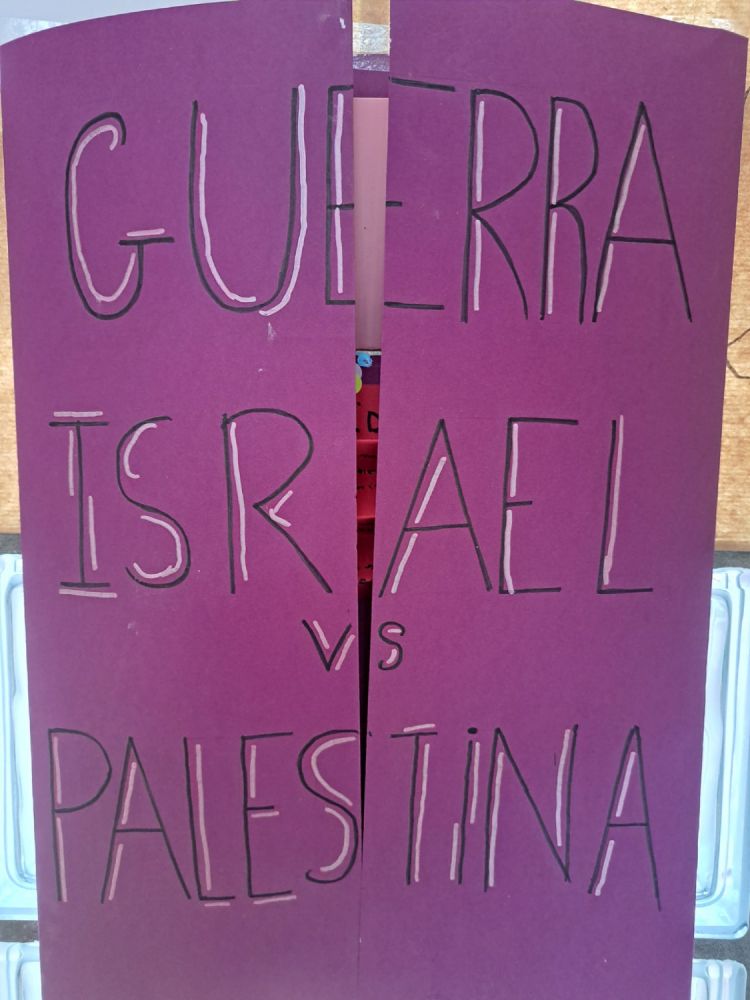 GUERRA
ISRAEL
VS
PALESTiNA